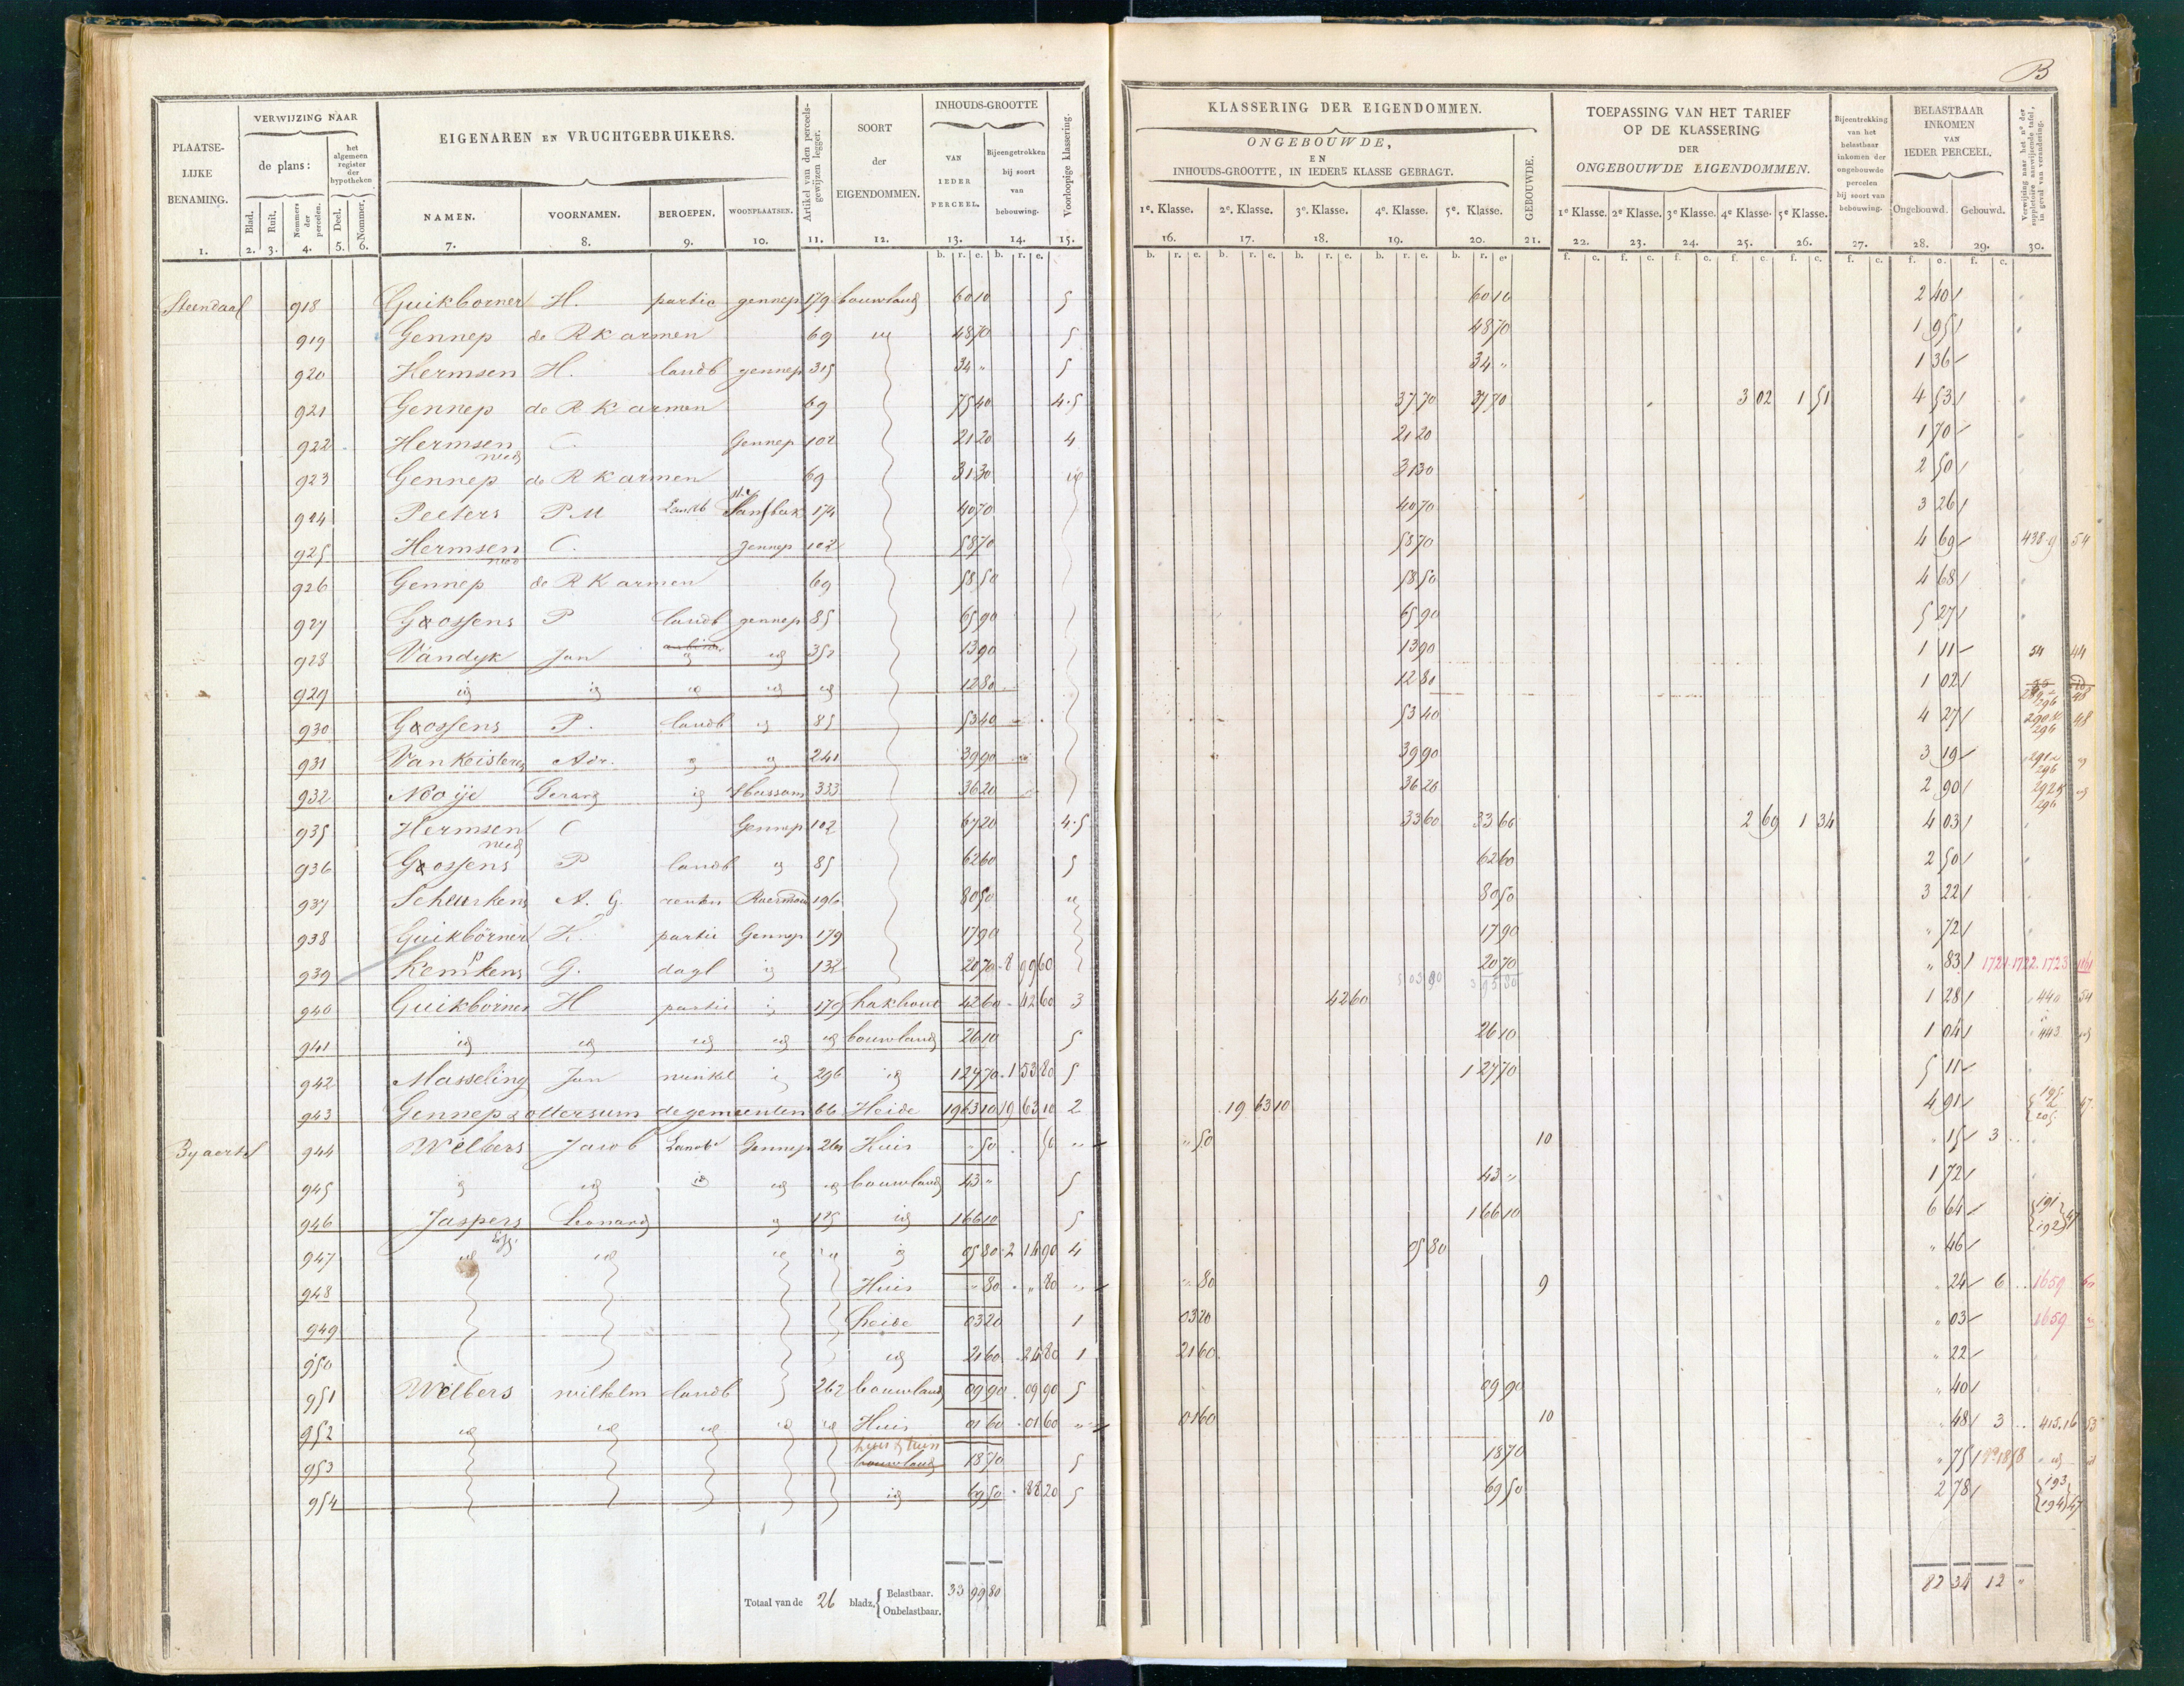 B
PLAATSELIJKE BENAMING. 1.
VERWIJZING NAAR
de plans:
Blad. 2. Ruit. 3. Nommers der perceelen. 4.
het algemeen register der hypotheken
Deel. 5. Nommer. 6.
EIGENAREN EN VRUCHTGEBRUIKERS.
NAMEN. 7. VOORNAMEN. 8. BEROEPEN. 9. WOONPLAATSEN. 10.
Artikel van den perceelsgewijzen legger. 11.
SOORT der EIGENDOMMEN. 12.
INHOUDS-GROOTTE
VAN IEDER PERCEEL. 13. Bijeengetrokken bij soort van bebouwing. 14.
Voorloopige klassering. 15.
KLASSERING DER EIGENDOMMEN.
ONGEBOUWDE,
EN
INHOUDS-GROOTTE, IN IEDERE KLASSE GEBRAGT.
1e. Klasse. 16. 2e. Klasse. 17. 3e. Klasse. 18. 4e. Klasse. 19. 5e. Klasse. 20.
GEBOUWDE. 21.
TOEPASSING VAN HET TARIEF
OP DE KLASSERING
DER
ONGEBOUWDE EIGENDOMMEN.
1e Klasse. 22. 2e Klasse. 23. 3e Klasse. 24. 4e Klasse. 25. 5e Klasse. 26.
Bijeentrekking van het belastbaar inkomen der ongebouwde perceelen bij soort van bebouwing. 27.
BELASTBAAR INKOMEN VAN IEDER PERCEEL.
Ongebouwd. 28. Gebouwd. 29.
Verwijzing naar het no der suppletoire aanwijzende tafel, in geval van verandering. 30.
918 Guikborner H. partic gennep 179 bouwland 60 10 5 60 10 2 40
919 Gennep de R K armen 69 id 48 70 5 48 70 1 95
920 Hermsen H. landb gennep 315 34 " 5 34 " 1 36
921 Gennep de R K armen 69 75 40 4.5 37 70 37 70 3 02 1 51 4 53
922 Hermsen C. Gennep 102 21 20 4 21 20 1 70
923 Gennep de R K armen 69 31 30 id 31 30 2 50
924 Peeters P M Landb 174 40 70 40 70 3 26
925 Hermsen C. gennep 102 58 70 58 70 4 69 438.9 54
926 Gennep de R K armen 69 58 50 58 50 4 68
927 Goossens P landb gennep 85 65 90 65 90 5 27
928 Vandyk Jan id id 352 13 90 13 90 1 11 54 44
929 id id id id id 12 80 12 80 1 02 296 48
930 Goossens P. landb id 85 53 40 53 40 4 27 296 48
931 Van Keisteren Adr. id id 241 39 90 39 90 3 19 296 id
932 Nooije Gerard id Hassum 333 36 20 36 20 2 90 296 id
935 Hermsen C Gennep 102 67 20 4.5 33 60 33 60 2 69 1 34 4 03
936 Goossens P landb id 85 62 60 5 62 60 2 50
937 Scheurkens A. G. renten Roermond 196 80 50 id 80 50 3 22
938 Guikbörner H. partic Gennep 179 17 90 17 90 " 72
939 Kemkens G. dagl id 132 20 70 8 99 60 20 70 " 83 1721.1722.1723 1861
5 03 90 3 95 80
940 Guikborner H partic id 179 hakhout 42 60 42 60 3 42 60 1 28 440 54
941 id id id id id bouwland 26 10 5 26 10 1 04 443 id
942 Masseling Jan winkel id 296 id 1 27 70 1 53 80 5 1 27 70 5 11
943 Gennep & ottersum de gemeenten 66 Heide 19 63 10 19 63 10 2 19 63 10 4 91 195 205 47
944 Welbers Jacob Landb Gennep 261 Huis " 50 50 " " 50 10 " 15 3
945 id id id id id bouwland 43 " 5 43 " 1 72
946 Jaspers Leonard id 125 id 1 66 10 5 1 66 10 6 64 191 192 47
947 id id id id id 05 80 2 14 90 4 05 80 " 46
948 Huis " 80 " 80 " " 80 9 " 24 6 1659 60
949 heide 03 20 1 03 20 " 03 1659 id
950 id 21 60 24 80 1 21 60 " 22
951 Welbers wilhelm landb 262 bouwland 09 90 09 90 5 09 90 " 40
952 id id id id id Huis 01 60 01 60 " 01 60 10 " 48 3 415.16 53
huis & tuin
953 bouwland 18 70 5 18 70 " 75 id
954 id 69 50 88 20 5 69 50 2 78 193 194 47
Totaal van de 26 bladz. Belastbaar. 33 99 80
Onbelastbaar.
82 34 12 "